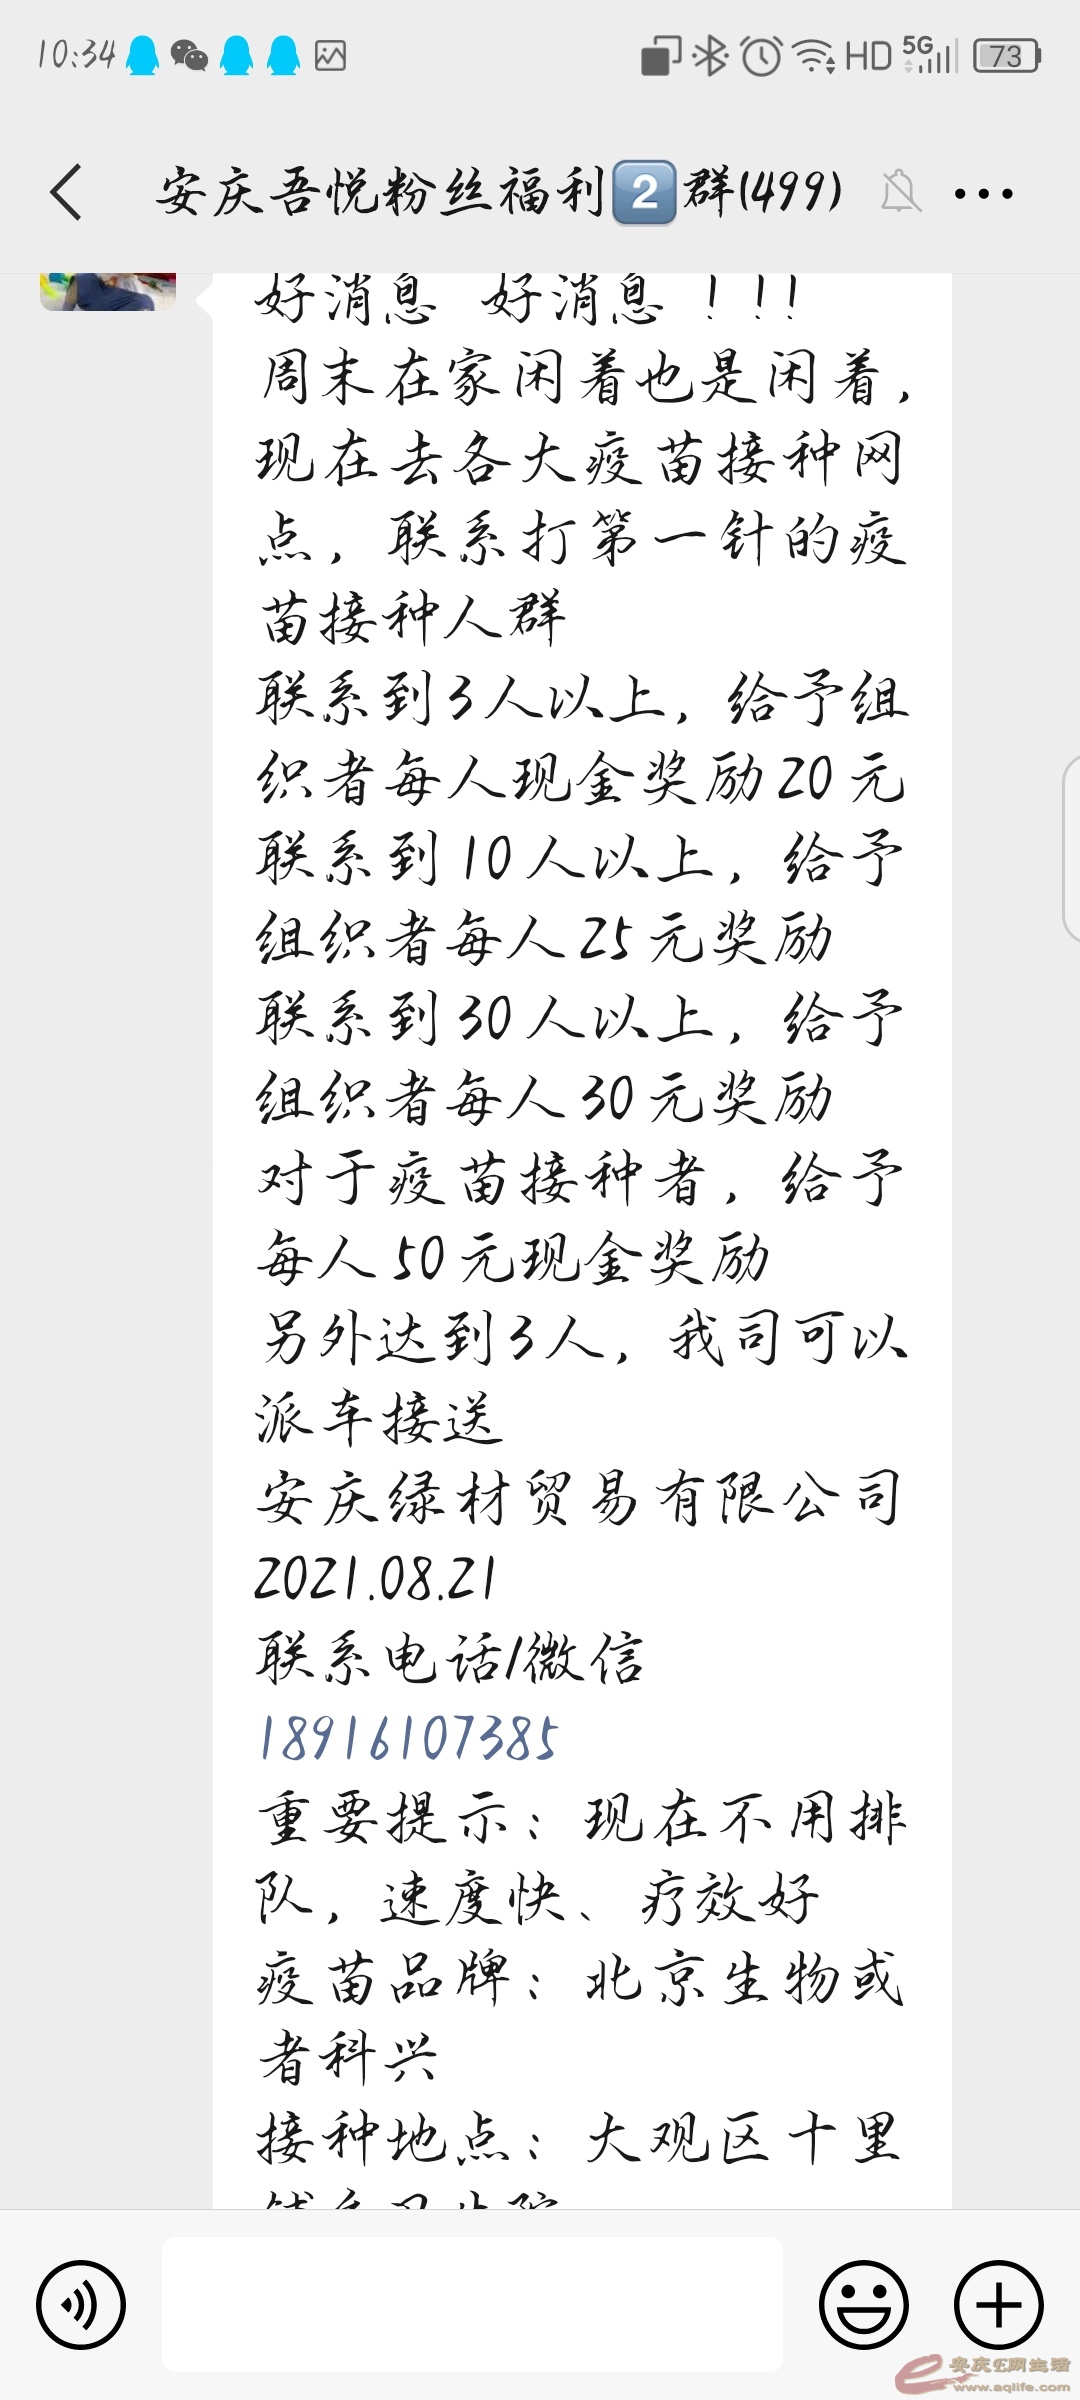 10:34
HD
5G
73
安庆吾悦粉丝福利2群(499)
好消息 好消息 ！！！
周末在家闲着也是闲着，
现在去各大疫苗接种网
点，联系打第一针的疫
苗接种人群
联系到3人以上，给予组
织者每人现金奖励20元
联系到10人以上，给予
组织者每人25元奖励
联系到30人以上，给予
组织者每人30元奖励
对于疫苗接种者，给予
每人50元现金奖励
另外达到3人，我司可以
派车接送
安庆绿材贸易有限公司
2021.08.21
联系电话/微信
18916107385
重要提示：现在不用排
队，速度快、疗效好
疫苗品牌：北京生物或
者科兴
接种地点：大观区十里
安庆E网生活
www.aqlife.com